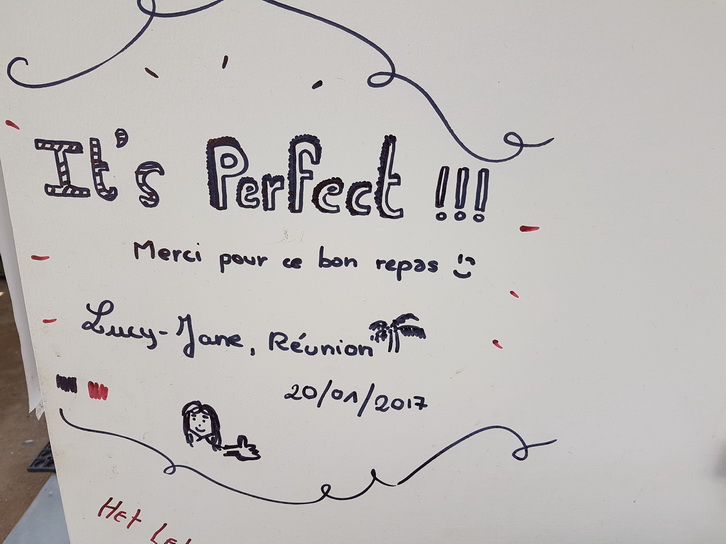 It's Perfect !!!
Merci pour ce bon repas
Lucy-Jane, Réunion
20/01/2017
Het